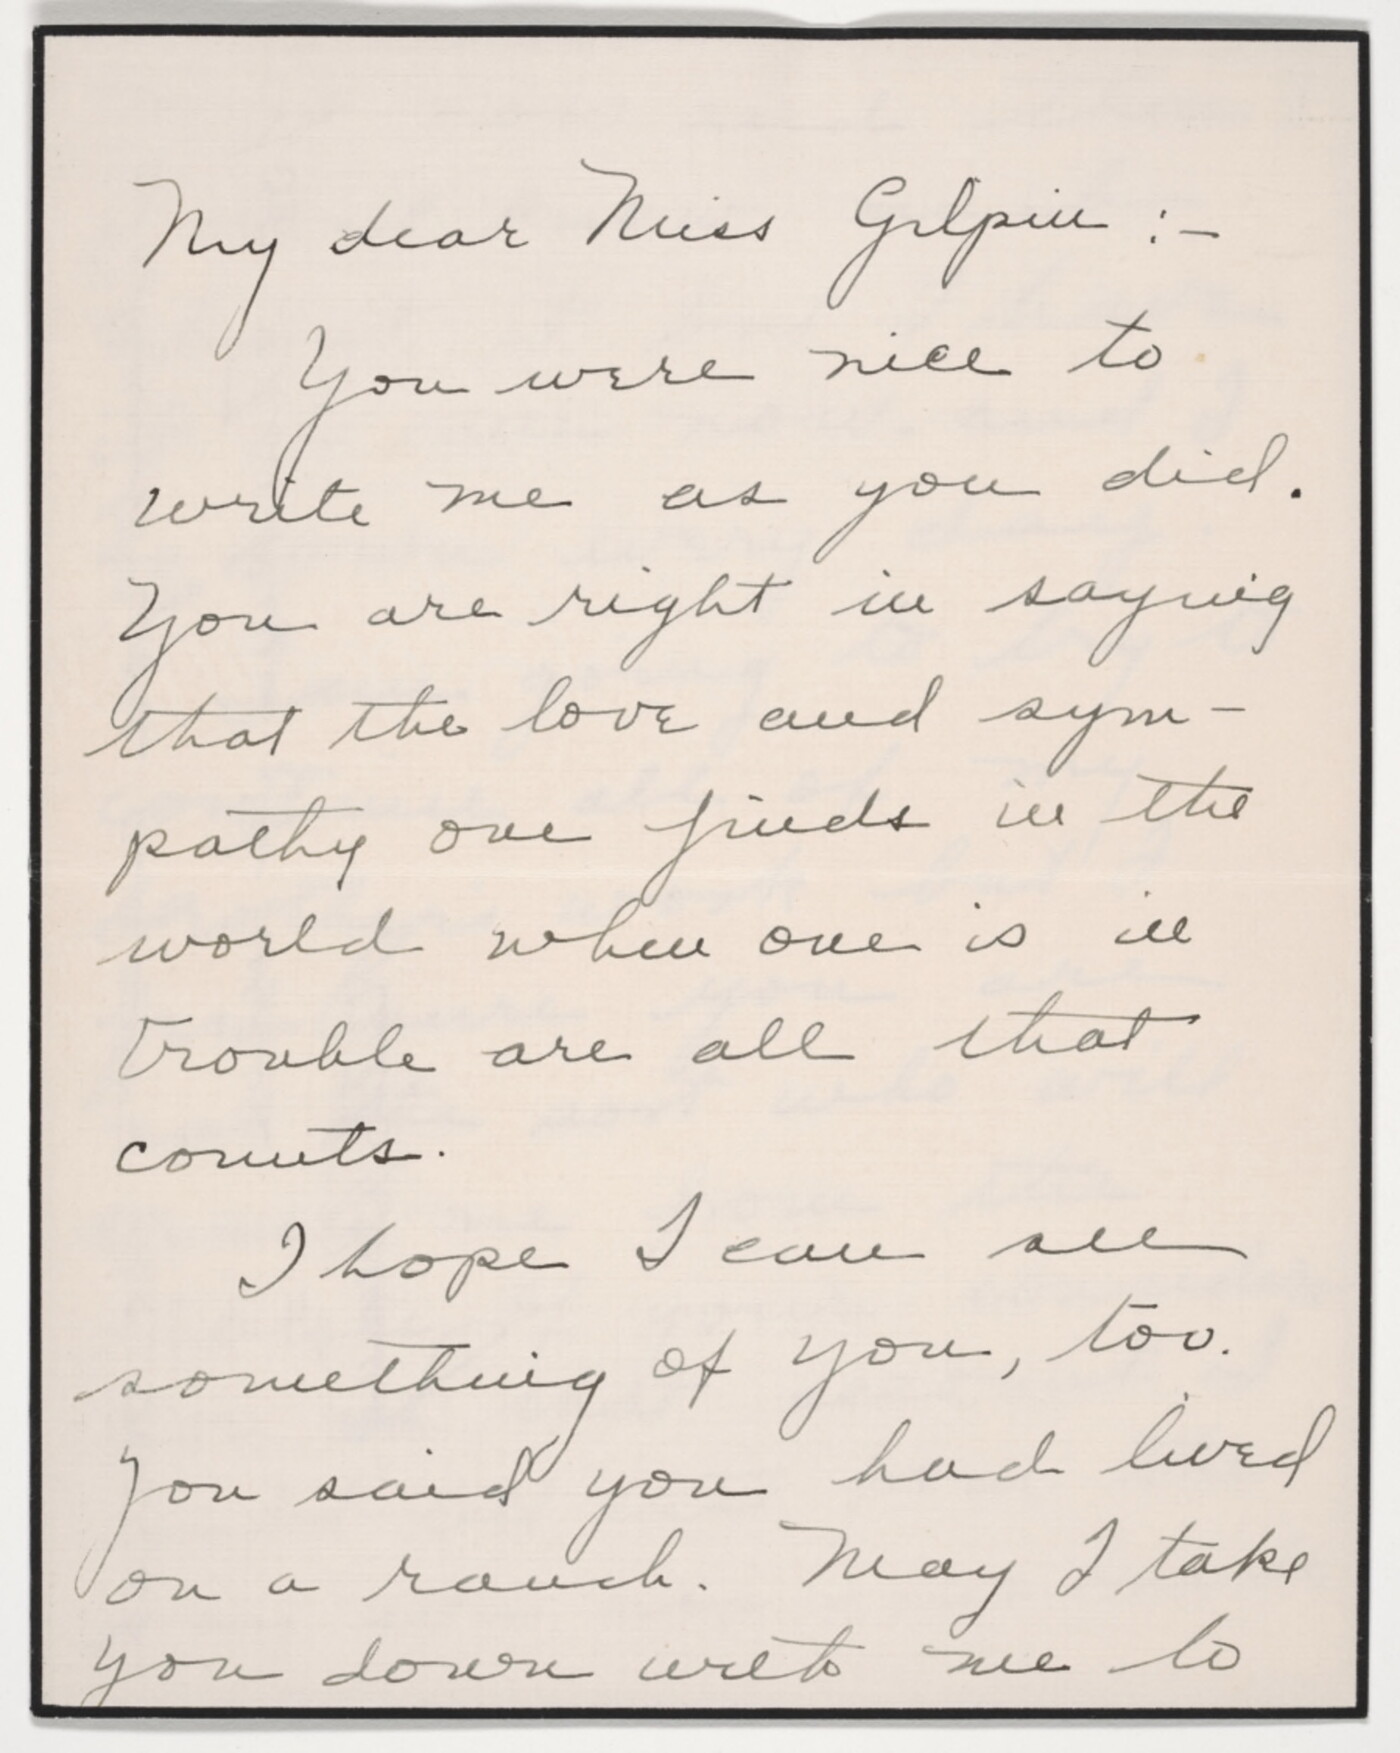 My dear Miss Gilpin :-
You were nice to
write me as you did.
You are right in saying
that the love and sym-
pathy one finds in the
world when one is in
trouble are all that
counts.
I hope I can see
something of you, too.
You said you had lived
on a ranch. May I take
you down with me to